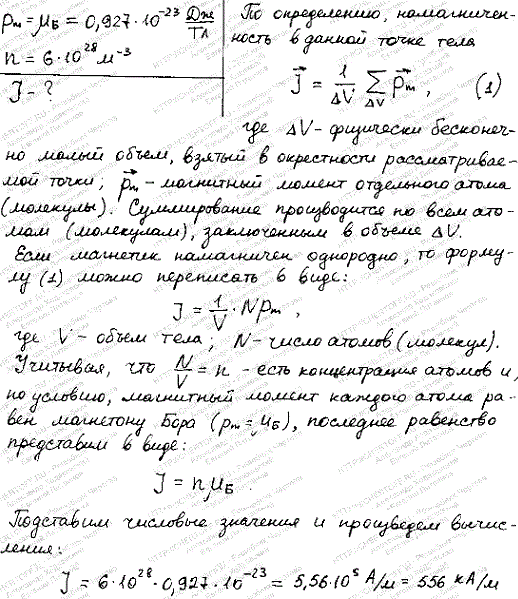 pₘ = μ_Б = 0,927·10⁻²³ Дж/Тл
n = 6·10²⁸ м⁻³
J - ?
По определению, намагничен-
ность в данной точке тела
J⃗ = 1/ΔV ∑_ΔV p⃗ₘ , (1)
где ΔV - физически бесконеч-
но малый объем, взятый в окрестности рассматривае-
мой точки; p⃗ₘ - магнитный момент отдельного атома
(молекулы). Суммирование производится по всем ато-
мам (молекулам), заключенным в объеме ΔV.
Если магнетик намагничен однородно, то форму-
лу (1) можно переписать в виде:
J = 1/V · Npₘ ,
где V - объем тела; N - число атомов (молекул).
Учитывая, что N/V = n - есть концентрация атомов и,
по условию, магнитный момент каждого атома ра-
вен магнетону Бора (pₘ = μ_Б), последнее равенство
представим в виде:
J = nμ_Б .
Подставим числовые значения и произведем вычис-
ления:
J = 6·10²⁸ · 0,927·10⁻²³ = 5,56·10⁵ А/м = 556 кА/м